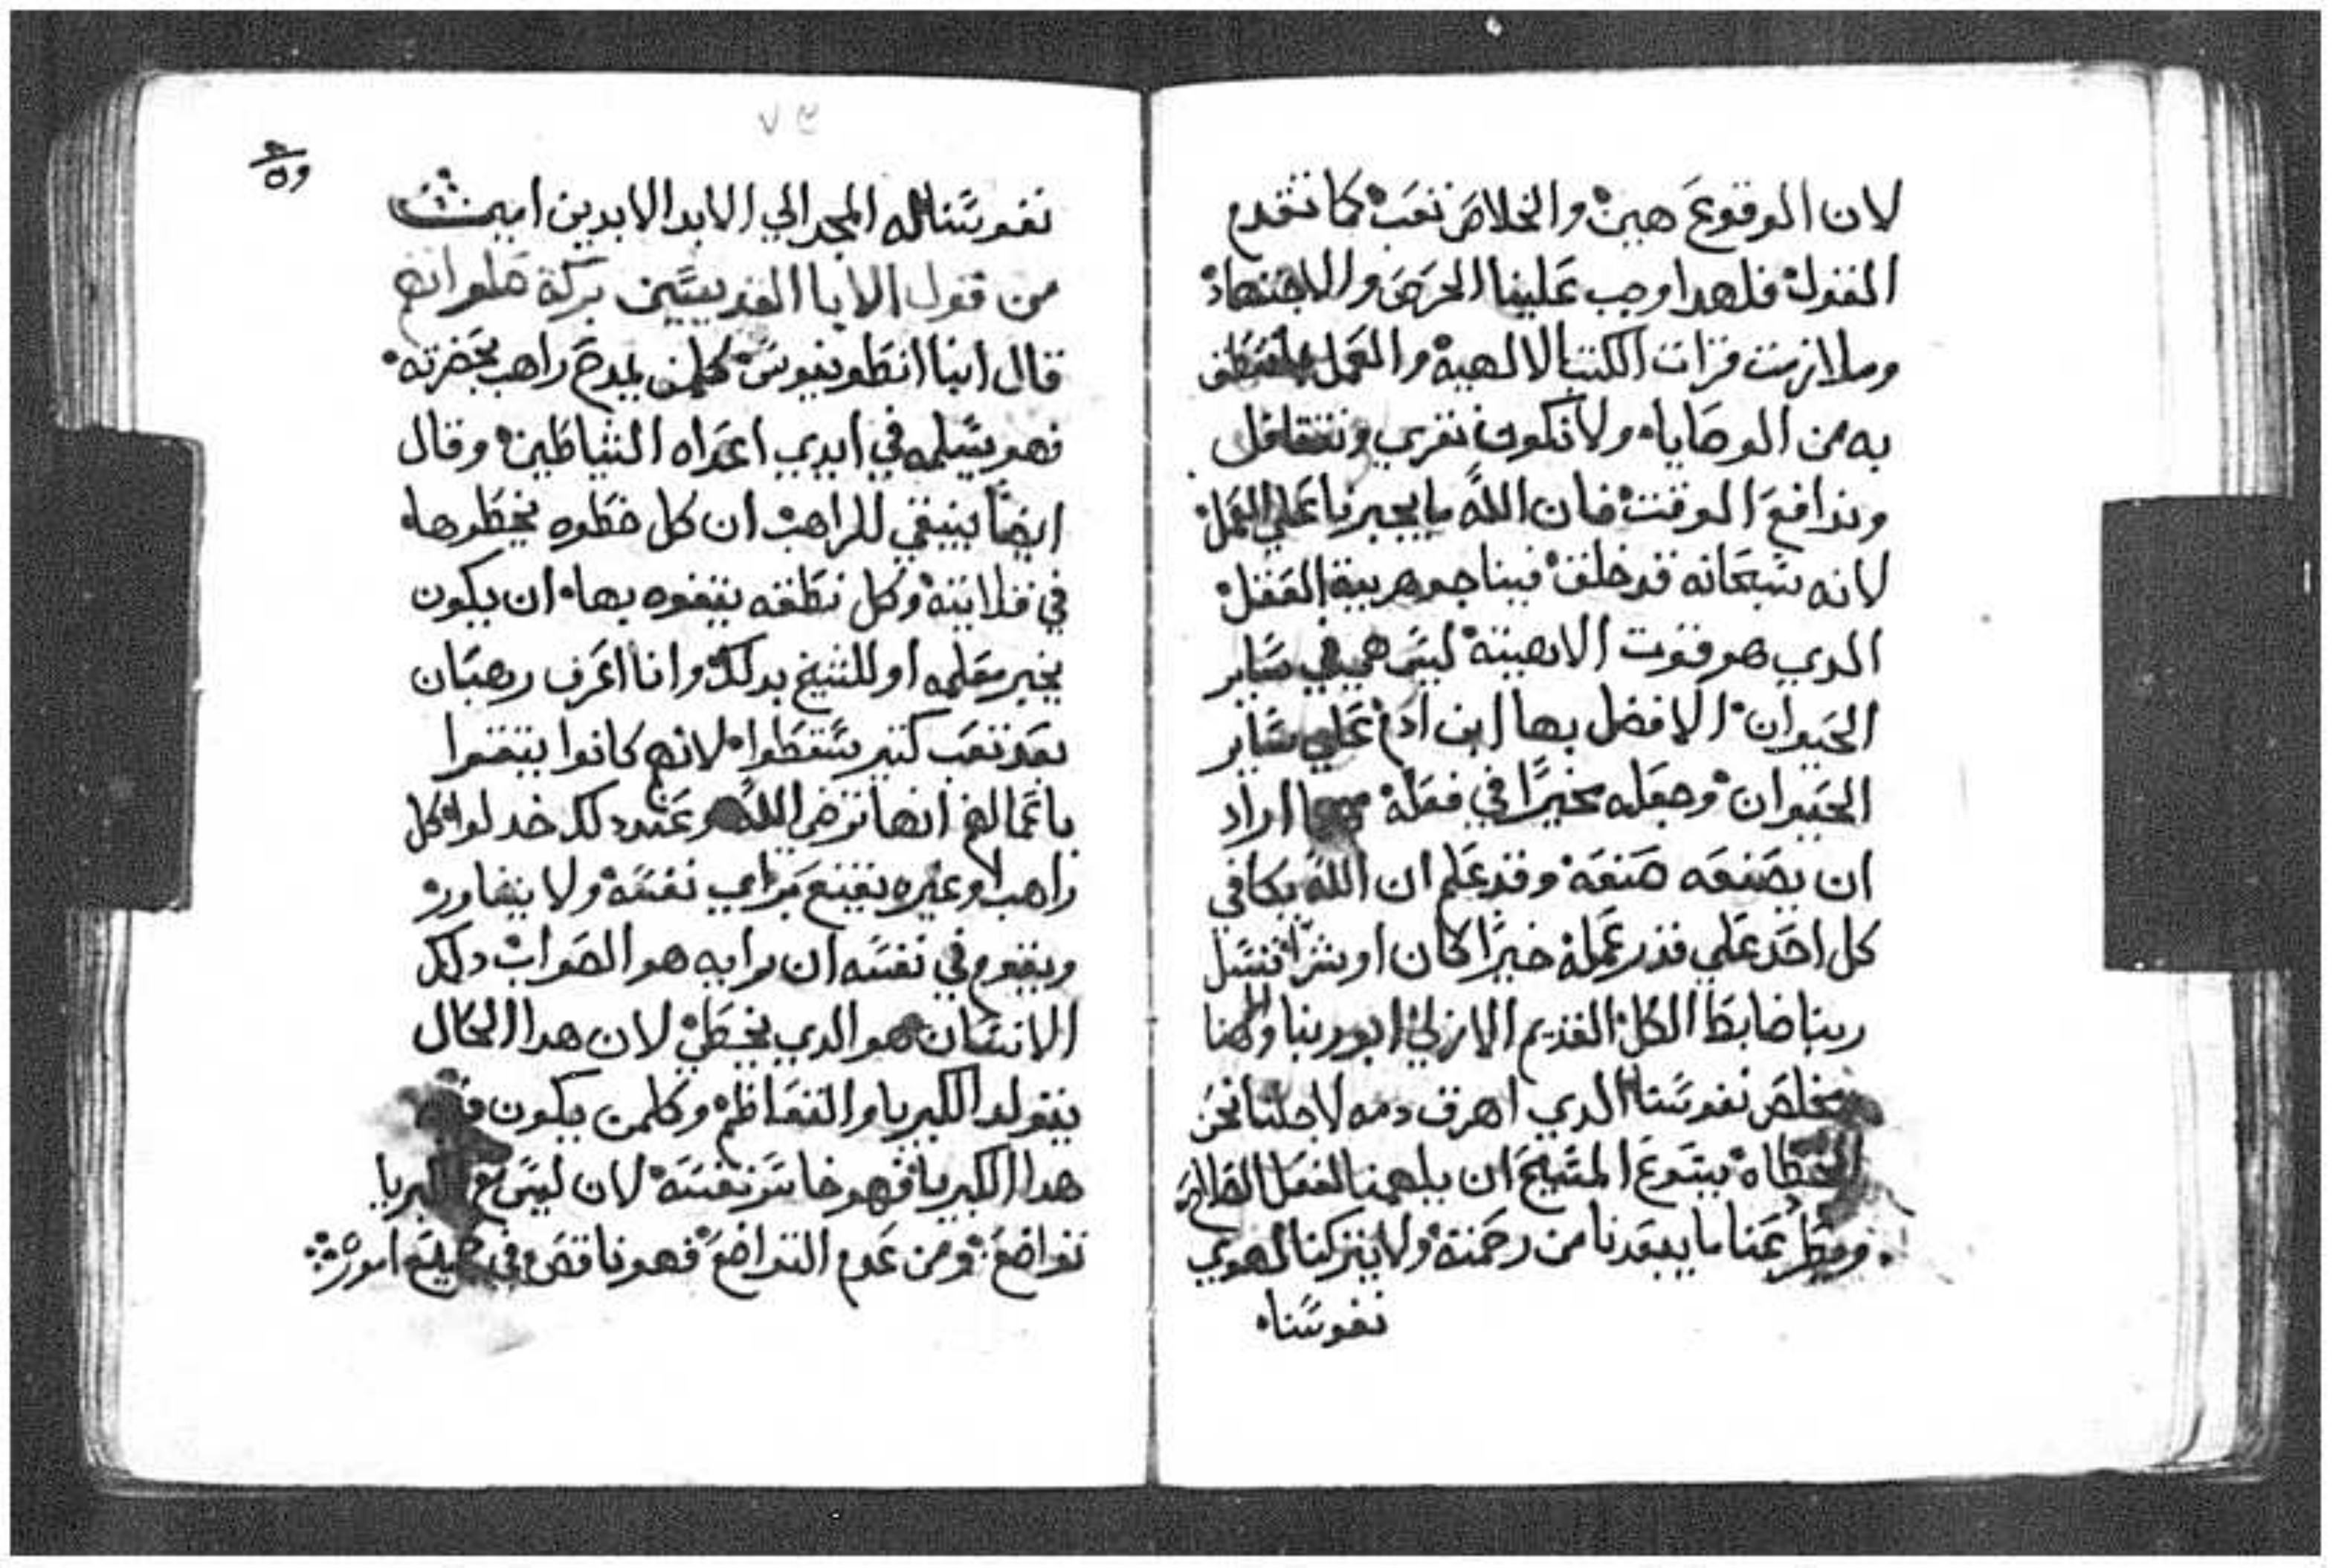 لان الوقوع هين والخلاص تعب كما تقدم
القول فلهدا وجب علينا الحرص والاجتهاد
وملازمت قرات الكتب الالهيه والعمل
به من الوصايا ولا نكون نقري ونتغافل
وندافع الوقت فان الله ما يجبرنا علي العمل
لانه سبحانه قد خلق فينا جوهريية العقل
الدي هو قوت الاهيته ليس هي في ساير
الحيوان الا فضل بها ابن ادم علي ساير
الحيوان وجعله مخيرا في فعله مهما اراد
ان يصنعه صنعه وقد علم ان الله يكافي
كل احد علي قدر عمله خيرا كان او شرا نسل
ربنا ضابط الكل القديم الازلي ابو ربنا والهنا
ومخلص نفوسنا الدي اهرق دمه لاجلنا نحن
الخطاه يسوع المسيح ان يلهمنا لفعل الصالح
عنا ما يبعدنا من رحمته ولا يتركنا لهوي
نفوسنا
٧٥
نفوسنا له المجد الي الابد الابدين امين
من قول الابا القديسين بركة صلواتهم
قال انبا انطونيوس كلمن يمدح راهب بحضرته
فهو يسلمه في ايدي اعداه الشياطين وقال
ايضا ينبغي للراهب ان كل خطوه يخطوها
في قلايته وكل نطقه يتفوه بها ان يكون
يخبر معلمه او للشيخ بدلك وانا اعرف رهبان
بعد تعب كتير سقطوا لانهم كانوا يتقوا
باعمالهم انها ترضي الله وعند دلك خدلوا كل
راهب او غيره يقتنع براي نفسه ولا يشاور
ويقوم في نفسه ان رايه هو الصواب دلك
الانسان هو الدي يخطي لان هدا الحال
يتولد الكبريا والتعاظم وكلمن يكون فيه
هدا الكبريا فهو خاسر نفسه لان ليس مع الكبريا
تواضع ومن عدم التواضع فهو ناقص في جميع اموره